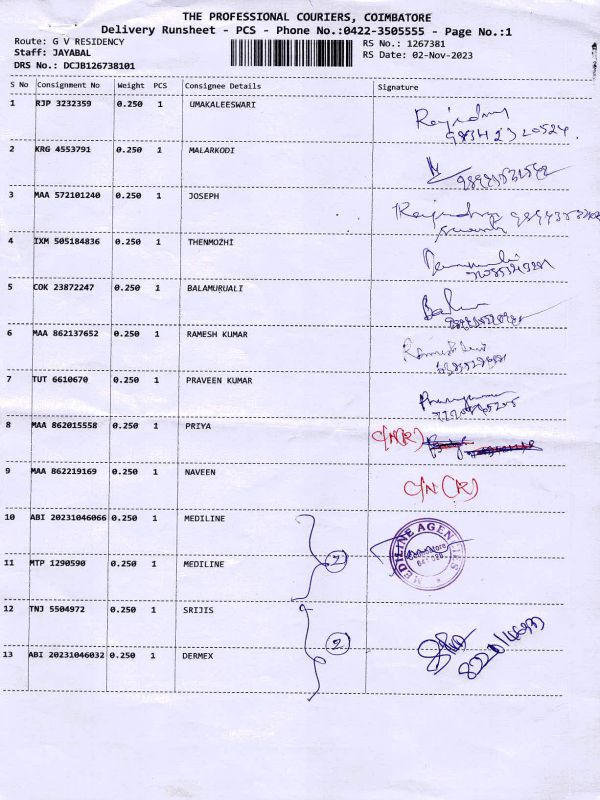 THE PROFESSIONAL COURIERS, COIMBATORE
Delivery Runsheet - PCS - Phone No.:0422-3505555 - Page No.:1
Route: G V RESIDENCY RS No.: 1267381
Staff: JAYABAL RS Date: 02-Nov-2023
DRS No.: DCJB126738101
S No Consignment No Weight PCS Consignee Details Signature
1 RJP 3232359 0.250 1 UMAKALEESWARI
2 KRG 4553791 0.250 1 MALARKODI
3 MAA 572101240 0.250 1 JOSEPH
4 IXM 505184836 0.250 1 THENMOZHI
5 COK 23872247 0.250 1 BALAMURUALI
6 MAA 862137652 0.250 1 RAMESH KUMAR
7 TUT 6610670 0.250 1 PRAVEEN KUMAR
8 MAA 862015558 0.250 1 PRIYA C/N(R)
9 MAA 862219169 0.250 1 NAVEEN C/N (R)
10 ABI 20231046066 0.250 1 MEDILINE
MEDILINE AGENCIES
11 MTP 1290590 0.250 1 MEDILINE 2
12 TNJ 5504972 0.250 1 SRIJIS
2
13 ABI 20231046032 0.250 1 DERMEX